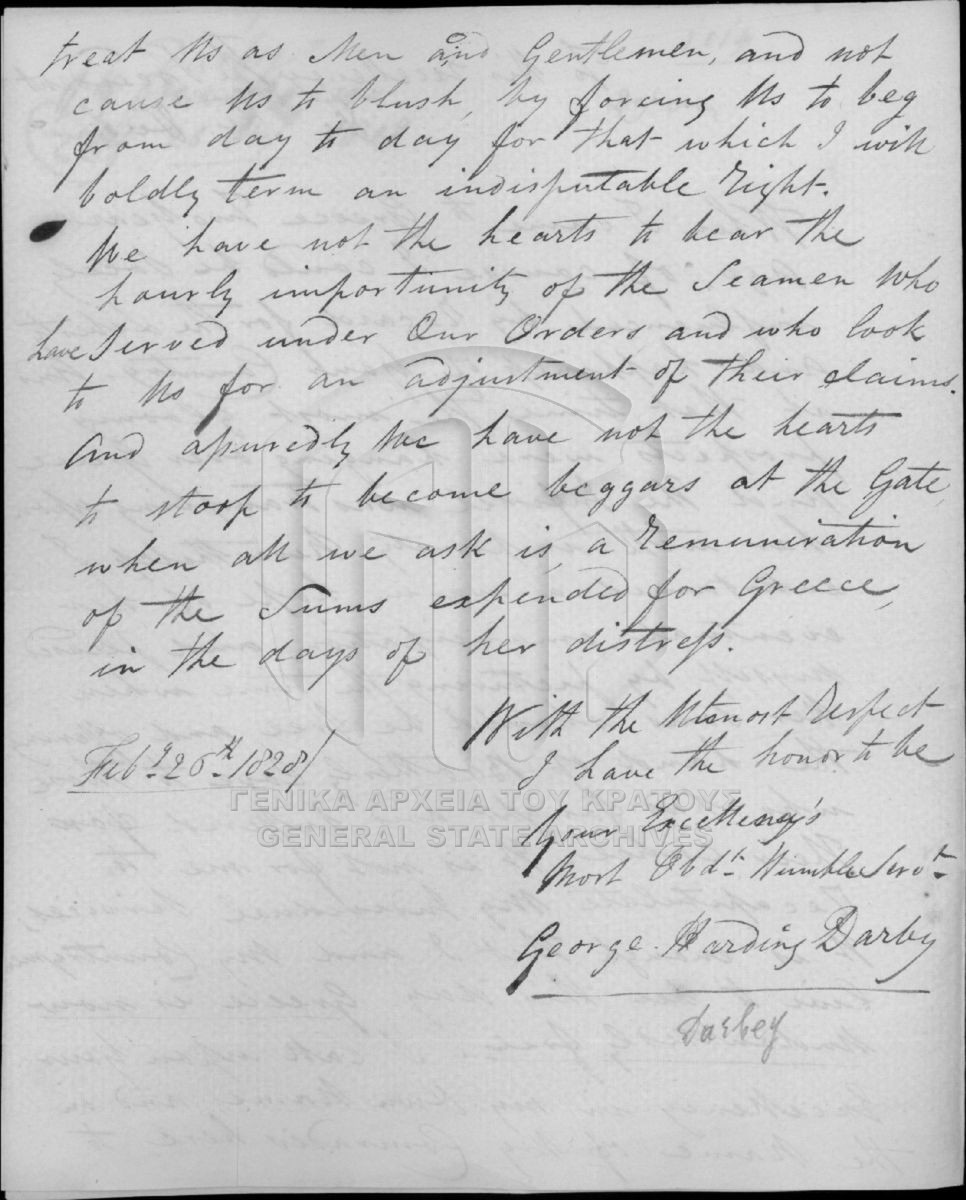 treat Us as Men and Gentlemen, and not
cause Us to blush, by forcing Us to beg
from day to day for that which I will
boldly term an indisputable Right.
We have not the hearts to hear the
hourly importunity of the Seamen who
have served under Our Orders and who look
to Us for an adjustment of their claims.
And assuredly We have not the hearts
to stoop to become beggars at the Gate,
when all we ask is, a Remuniration
of the Sums expended for Greece,
in the days of her distress.
With the Utmost Respect
Feby. 26th. 1828/
I have the honor to be
Your Excellency's
Most Obdt. Humble Servt.
George Harding Darby
Darbey
ΓΕΝΙΚΑ ΑΡΧΕΙΑ ΤΟΥ ΚΡΑΤΟΥΣ
GENERAL STATE ARCHIVES